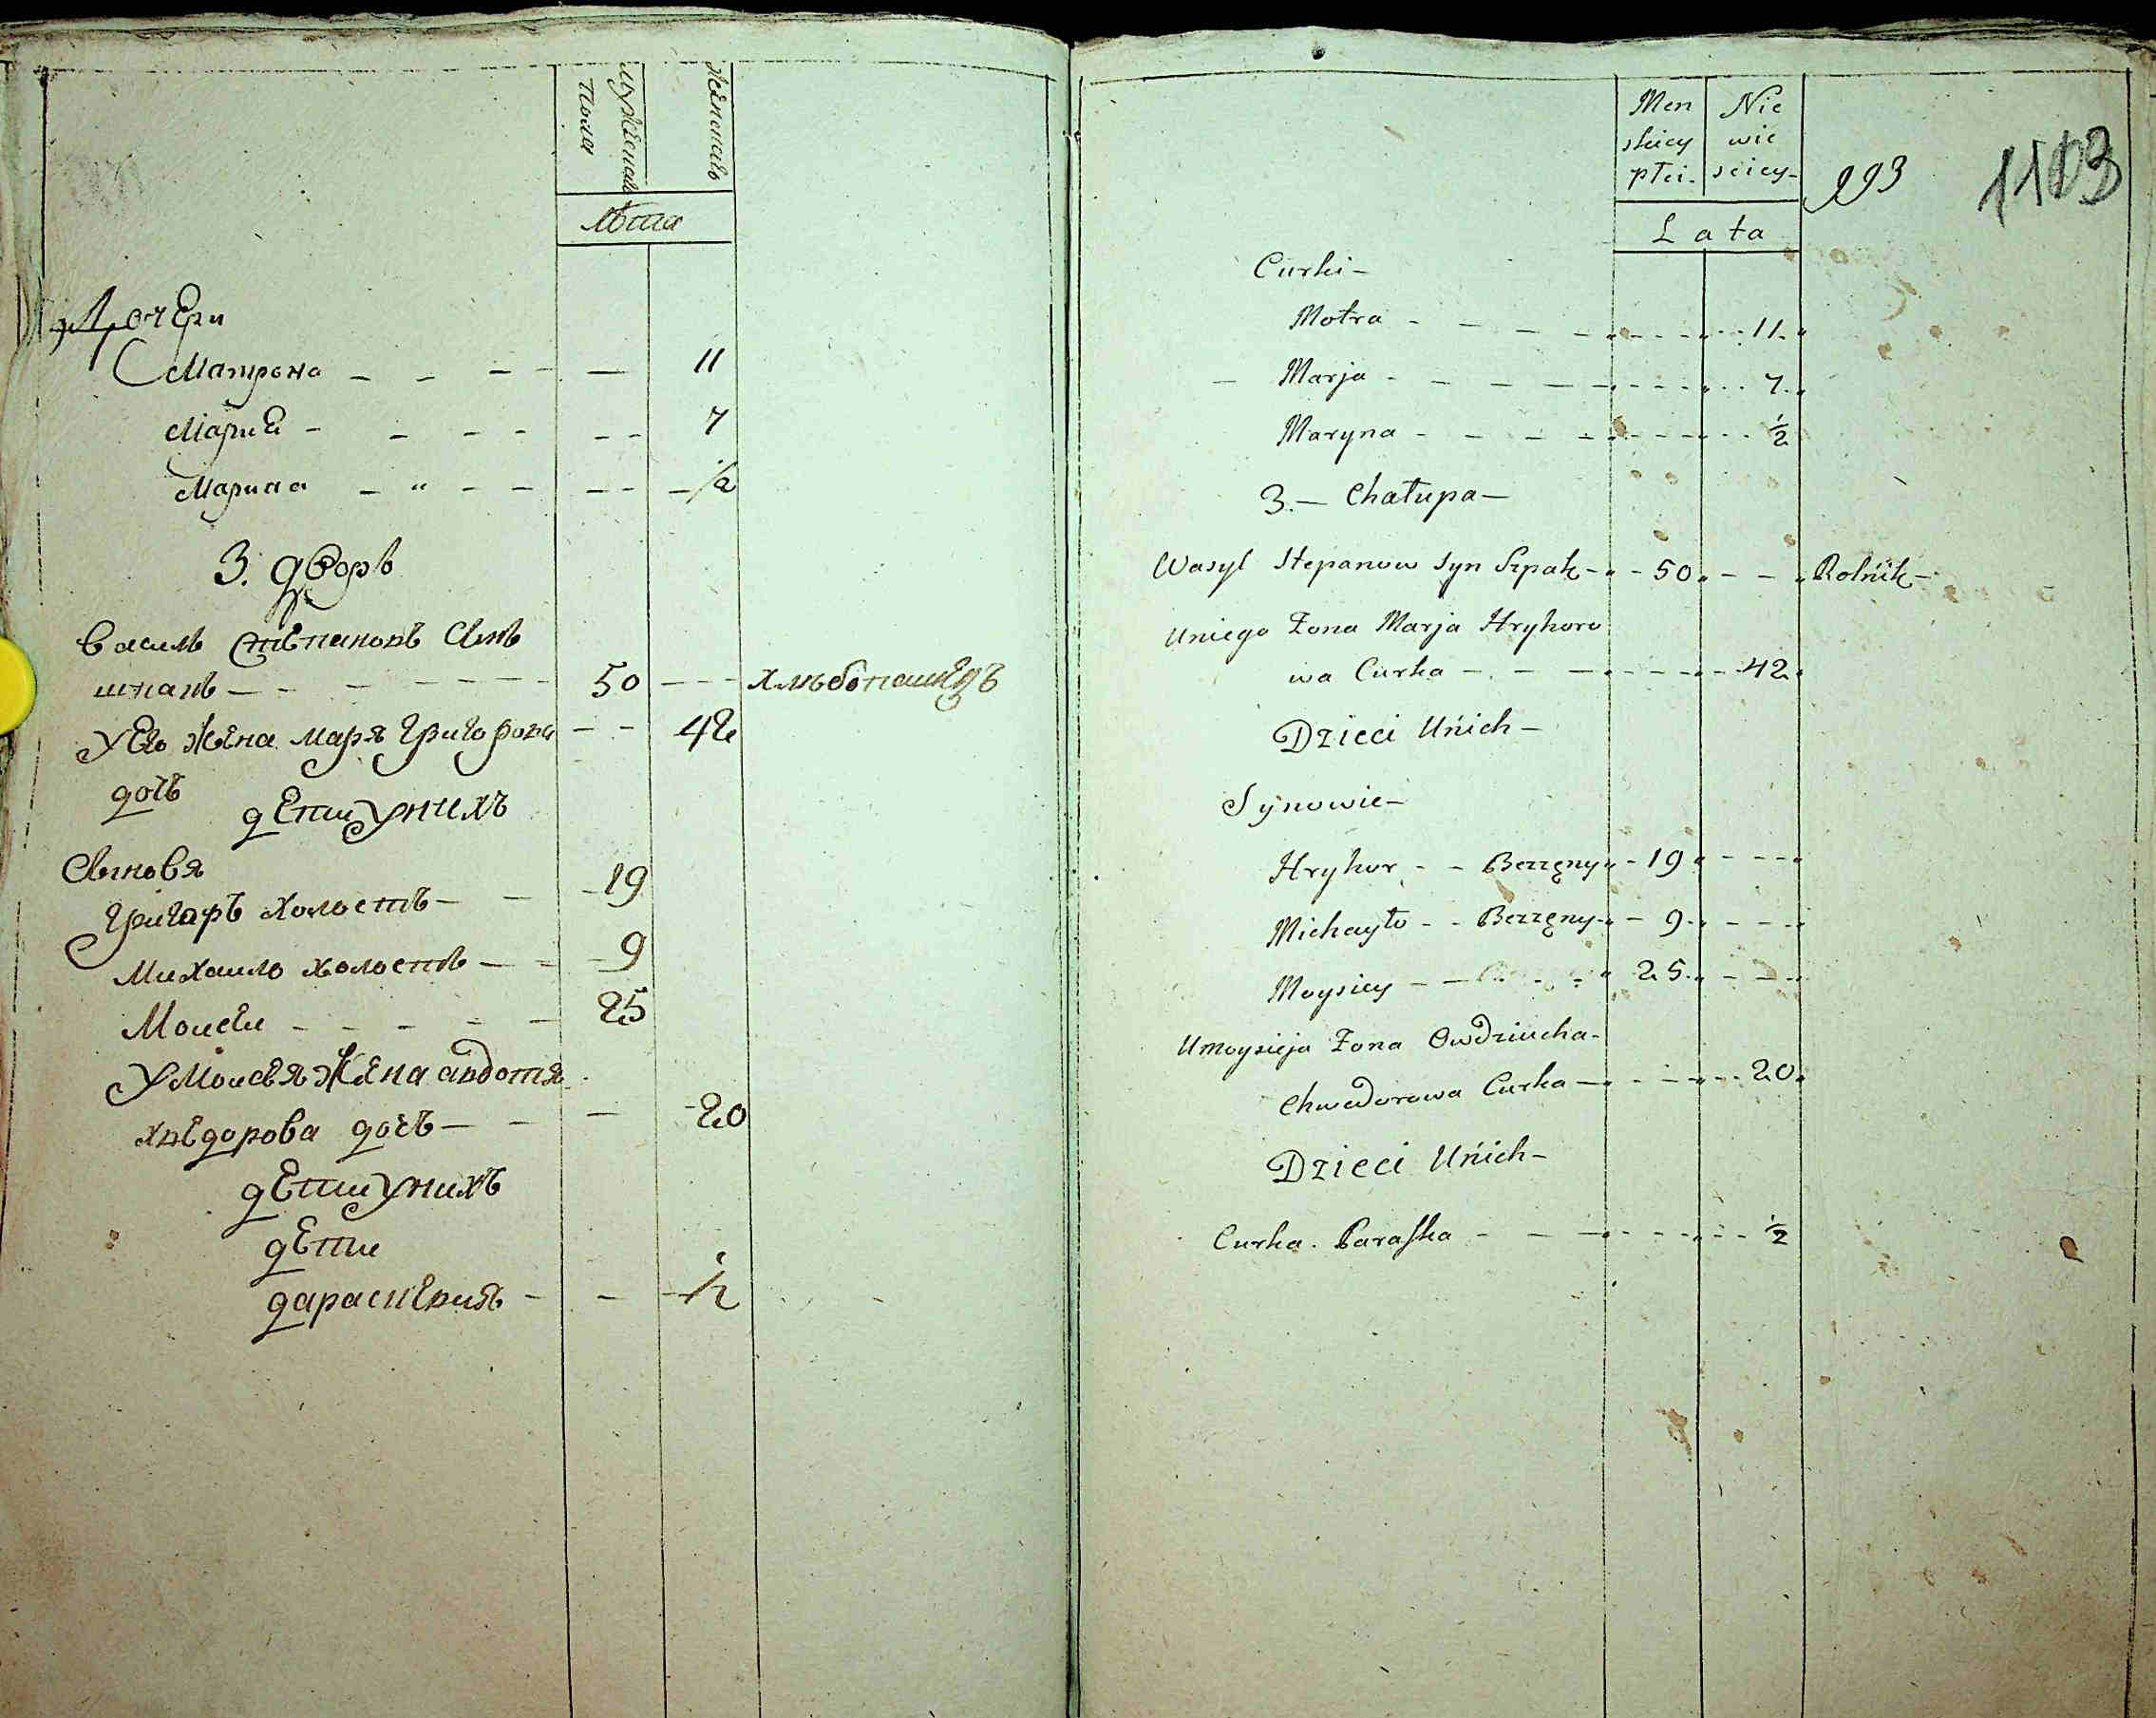 мужеска
пола
женска
Лѣта
Дочери
Матрона — — — — — 11
Мария — — — — — — 7
Марина — " — — — — — ½
3. дворъ
Василь Степановъ Сынъ
шпакъ — — — — — 50 — — — хлѣбопашецъ
У Его Жена маря Григорова — — 42
дочь
дети У нихъ
Сыновя
Григоръ холостъ — — 19
Михаило холостъ — — — 9
Моисеи — — — — — 25
У Моисея Жена авдотя
хведорова дочь — — — 20
дети У нихъ
дети
— — — ½
Men Nie
skiey wie
płci. sciey
L a t a
993
1103
Curki —
Motra — — — — 11.
— Marja — — — — 7.
Maryna — — — — ½
3. — Chałupa —
Wasyl Stepanow Syn Szpak — 50 — — Rolnik —
Uniego Żona Marja Hryhoro
wa Curka — — — 42
Dzieci Unich —
Synowie —
Hryhor — — Bezzęny — 19 — — —
Michayło — — Bezzęny — 9 — — —
Moysiey — — 25 — — —
Umoysieja Żona Owdziucha —
Chwedorowa Curka — — — 20
Dzieci Unich —
Curka. Paraska — — — ½